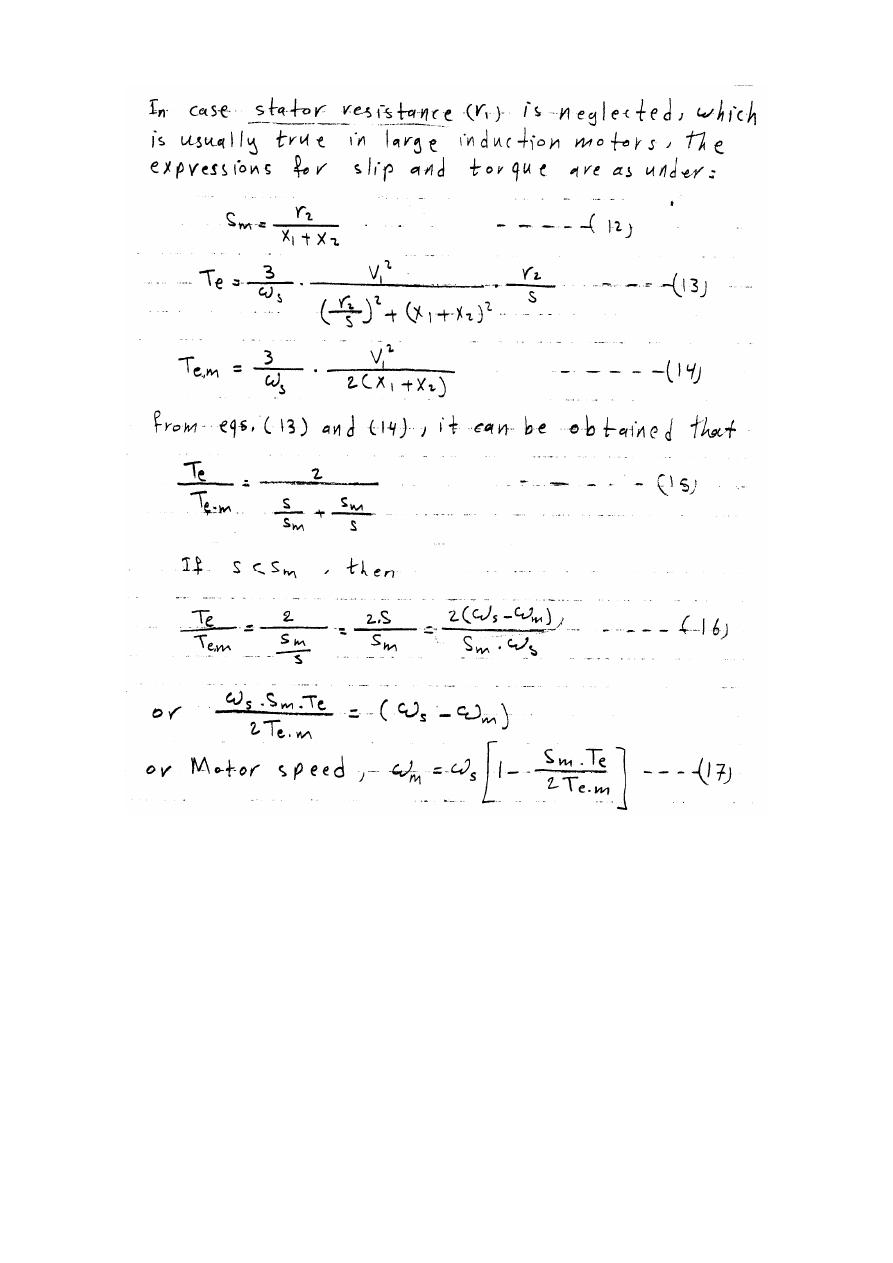 In case stator resistance (r₁) is neglected, which
is usually true in large induction motors, the
expressions for slip and torque are as under:
Sm = r₂ / (x₁ + x₂) -----(12)
Te = 3/ωs · V₁² / ((r₂/s)² + (x₁+x₂)²) · r₂/s -----(13)
Te.m = 3/ωs · V₁² / 2(x₁+x₂) ------(14)
from eqs. (13) and (14), it can be obtained that
Te/Te.m = 2 / (s/sm + sm/s) -----(15)
If s < sm, then
Te/Te.m = 2/(sm/s) = 2.s/sm = 2(ωs-ωm)/(sm.ωs), -----(16)
or ωs.sm.Te / 2Te.m = (ωs - ωm)
or Motor speed, ωm = ωs [1 - sm.Te / 2Te.m] ----(17)